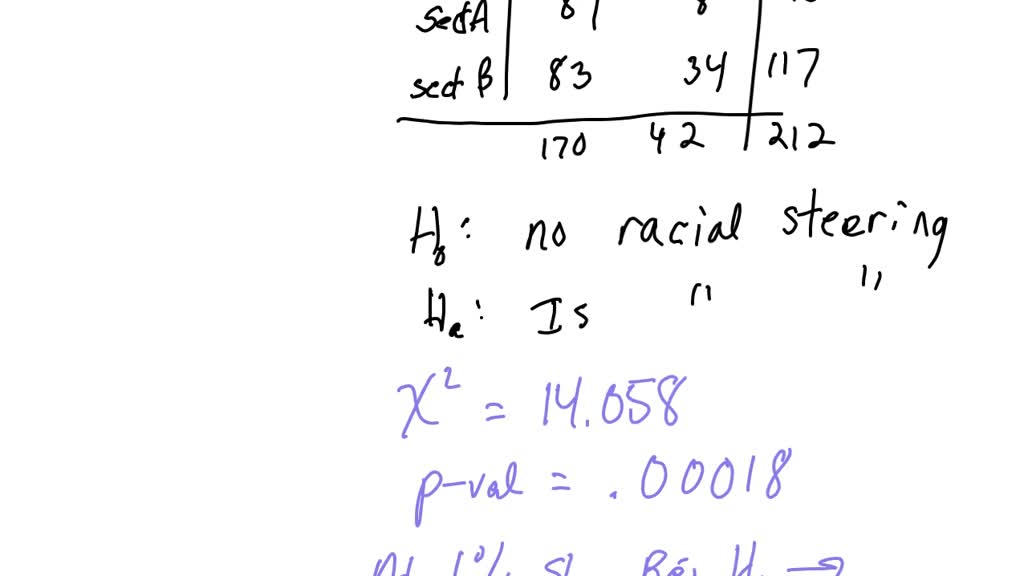 sectA 87 8
sect B 83 34 117
170 42 212
H₀: no racial steering
Hₐ: Is " "
χ² = 14.058
p-val = .00018
At 1% SL Rej H₀ →